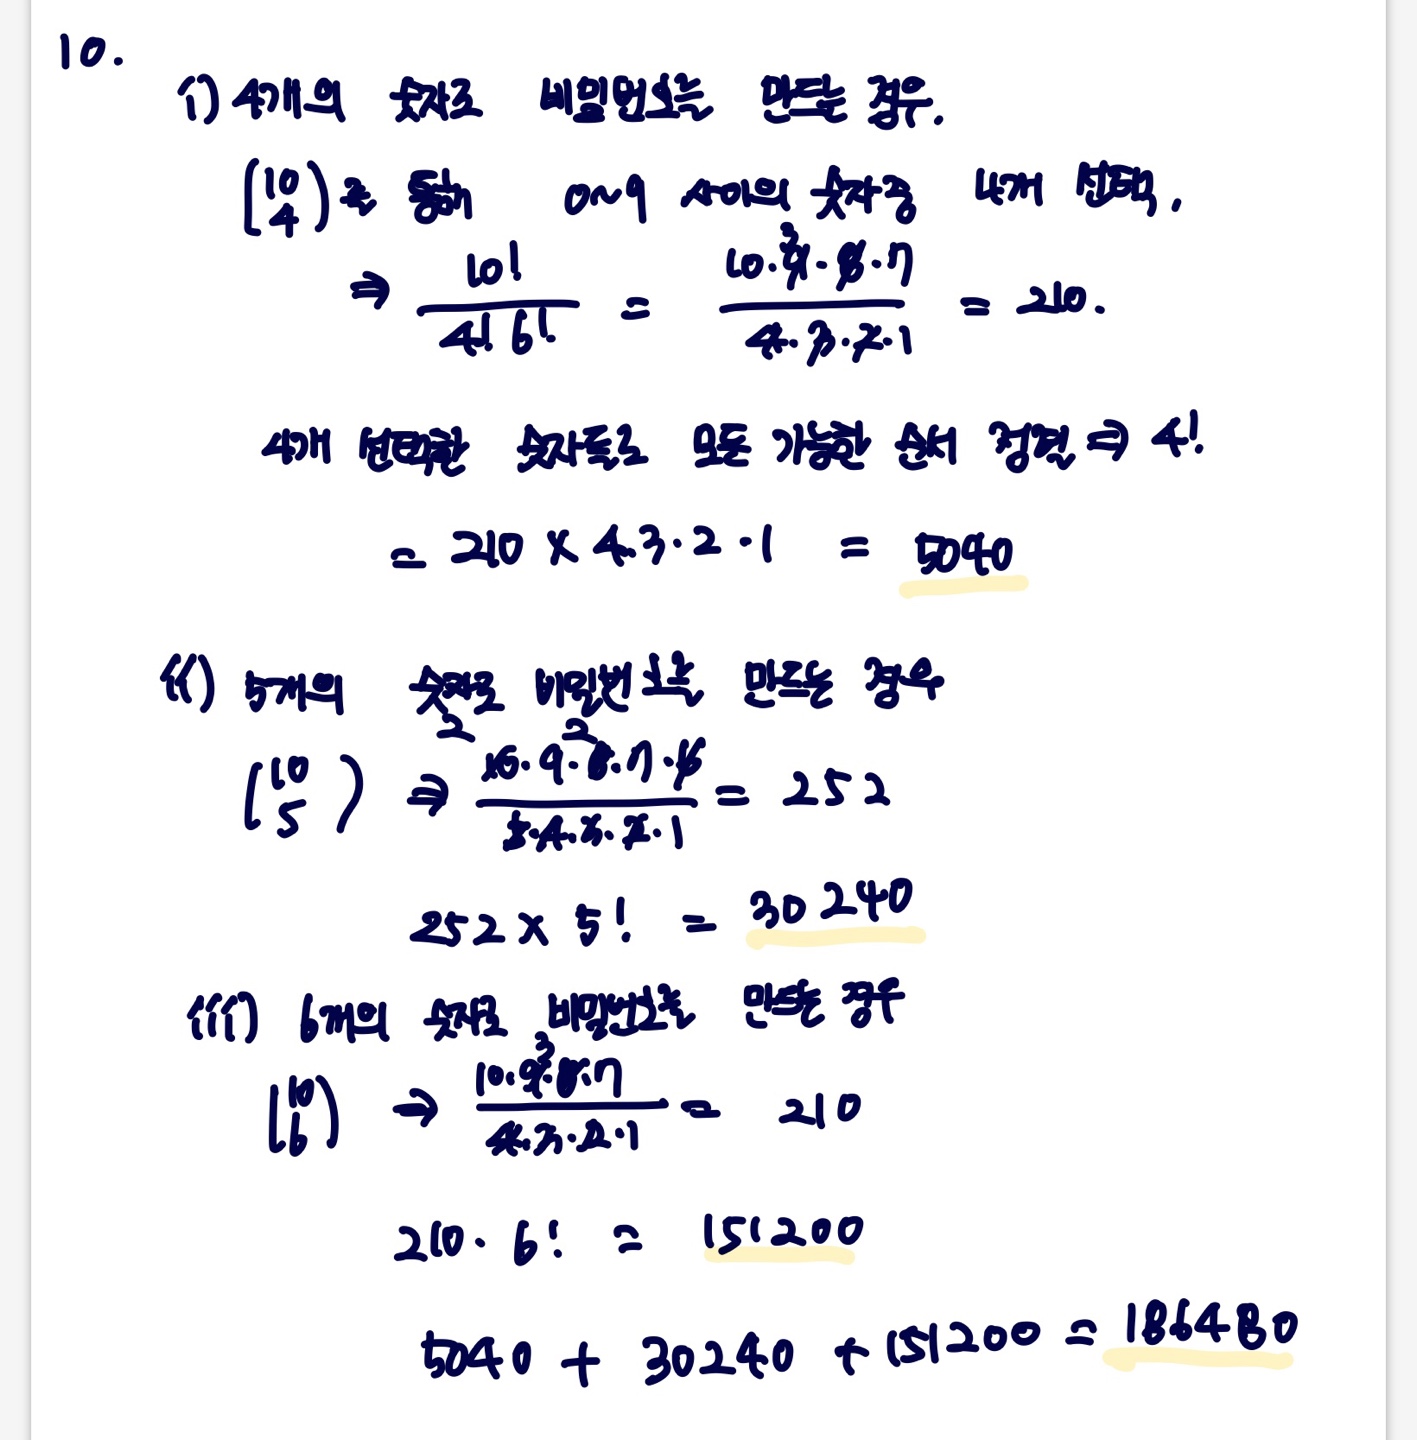 10.
i) 4개의 숫자로 비밀번호를 만드는 경우.
(10 4)를 통해 0~9 사이의 숫자중 4개 선택.
⇒ 10! / 4! 6! = 10·9·8·7 / 4·3·2·1 = 210.
3
4개 선택한 숫자들로 모든 가능한 순서 정렬 ⇒ 4!
= 210 × 4·3·2·1 = 5040
ii) 5개의 숫자로 비밀번호를 만드는 경우
2 2
(10 5) ⇒ 10·9·8·7·6 / 5·4·3·2·1 = 252
252 × 5! = 30240
iii) 6개의 숫자로 비밀번호를 만드는 경우
3
(10 6) → 10·9·8·7 / 4·3·2·1 = 210
210· 6! = 151200
5040 + 30240 + 151200 = 186480